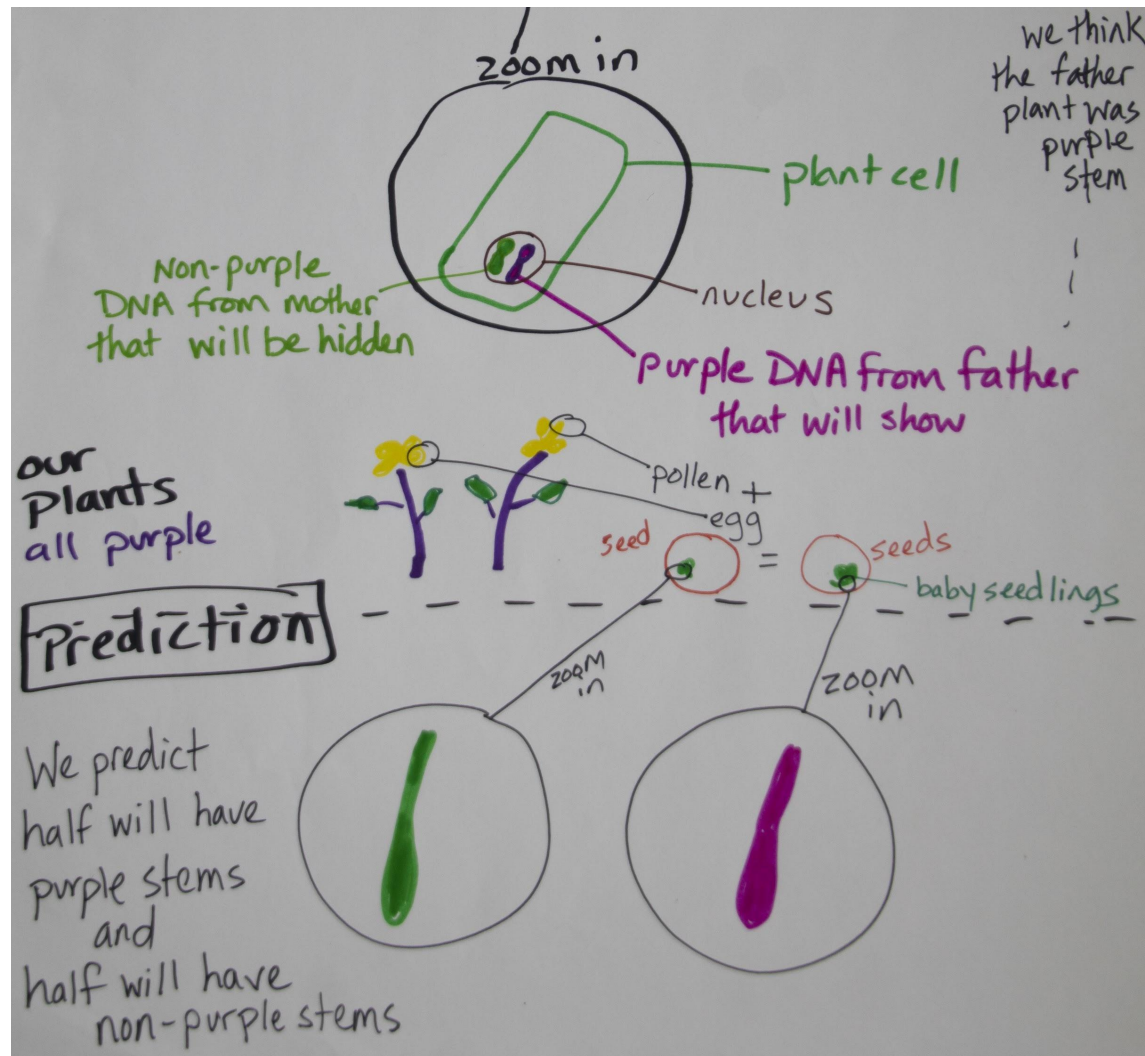 zoom in
we think
the father
plant was
purple
stem
plant cell
Non-purple
DNA from mother
that will be hidden
nucleus
purple DNA from father
that will show
our
plants
all purple
pollen +
egg
seed
=
seeds
baby seedlings
Prediction
zoom
in
zoom
in
We predict
half will have
purple stems
and
half will have
non-purple stems